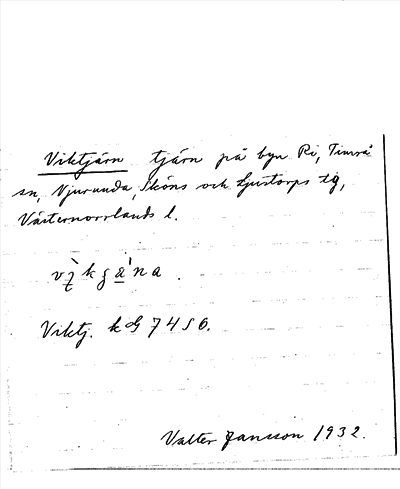 Viktjärn tjärn på byn Ri, Timrå
sn, Njurunda, Sköns och Ljustorps tg,
Västernorrlands l.
Viktj. kG 7456.
Valter Jansson 1932.